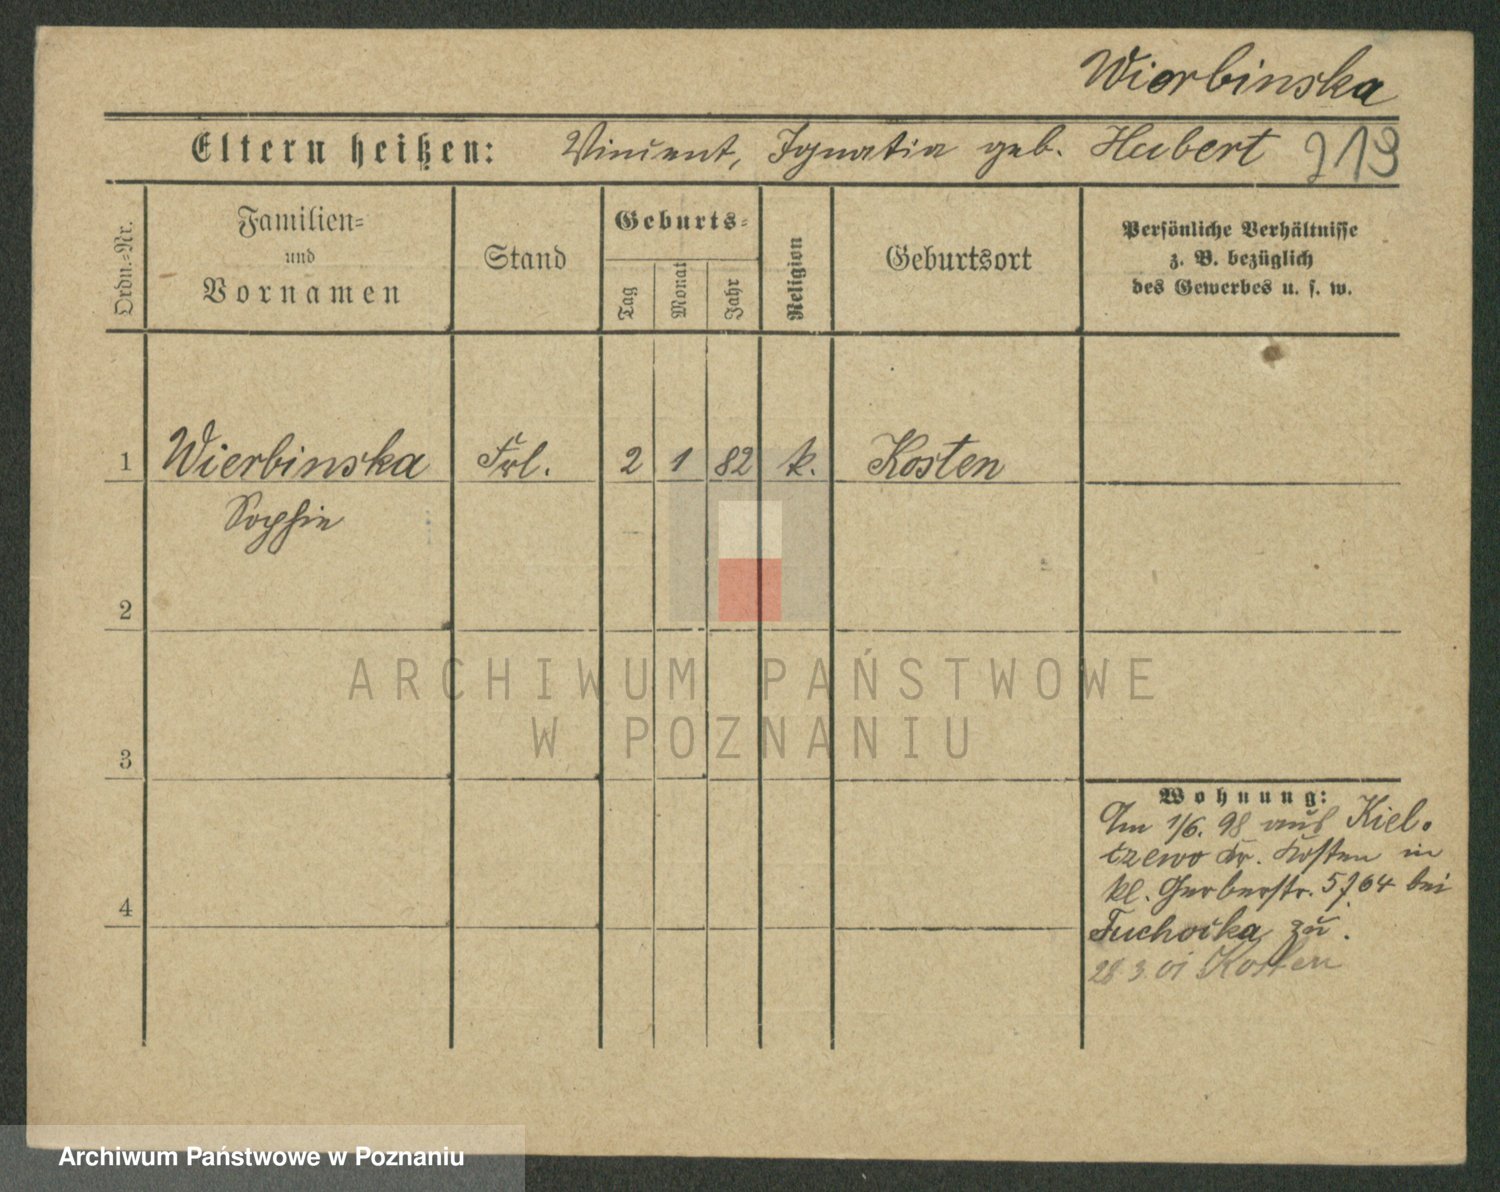 Wierbinska
Eltern heißen: Vincent, Ignatia geb. Hubert 919
Ordn.=Nr.
Familien=
und
Vornamen
Stand
Geburts=
Tag
Monat
Jahr
Religion
Geburtsort
Persönliche Verhältnisse
z. B. bezüglich
des Gewerbes u. s. w.
1 Wierbinska Frl. 2 1 82 k. Kosten
Sophie
2
3
4
Wohnung:
Am 1/6. 98 aus Kiel-
tzewo Kr. Kosten in
kl. Gerberstr. 5/64 bei
Tuchocka zu.
28 3. 01 Kosten
ARCHIWUM PAŃSTWOWE
W POZNANIU
Archiwum Państwowe w Poznaniu